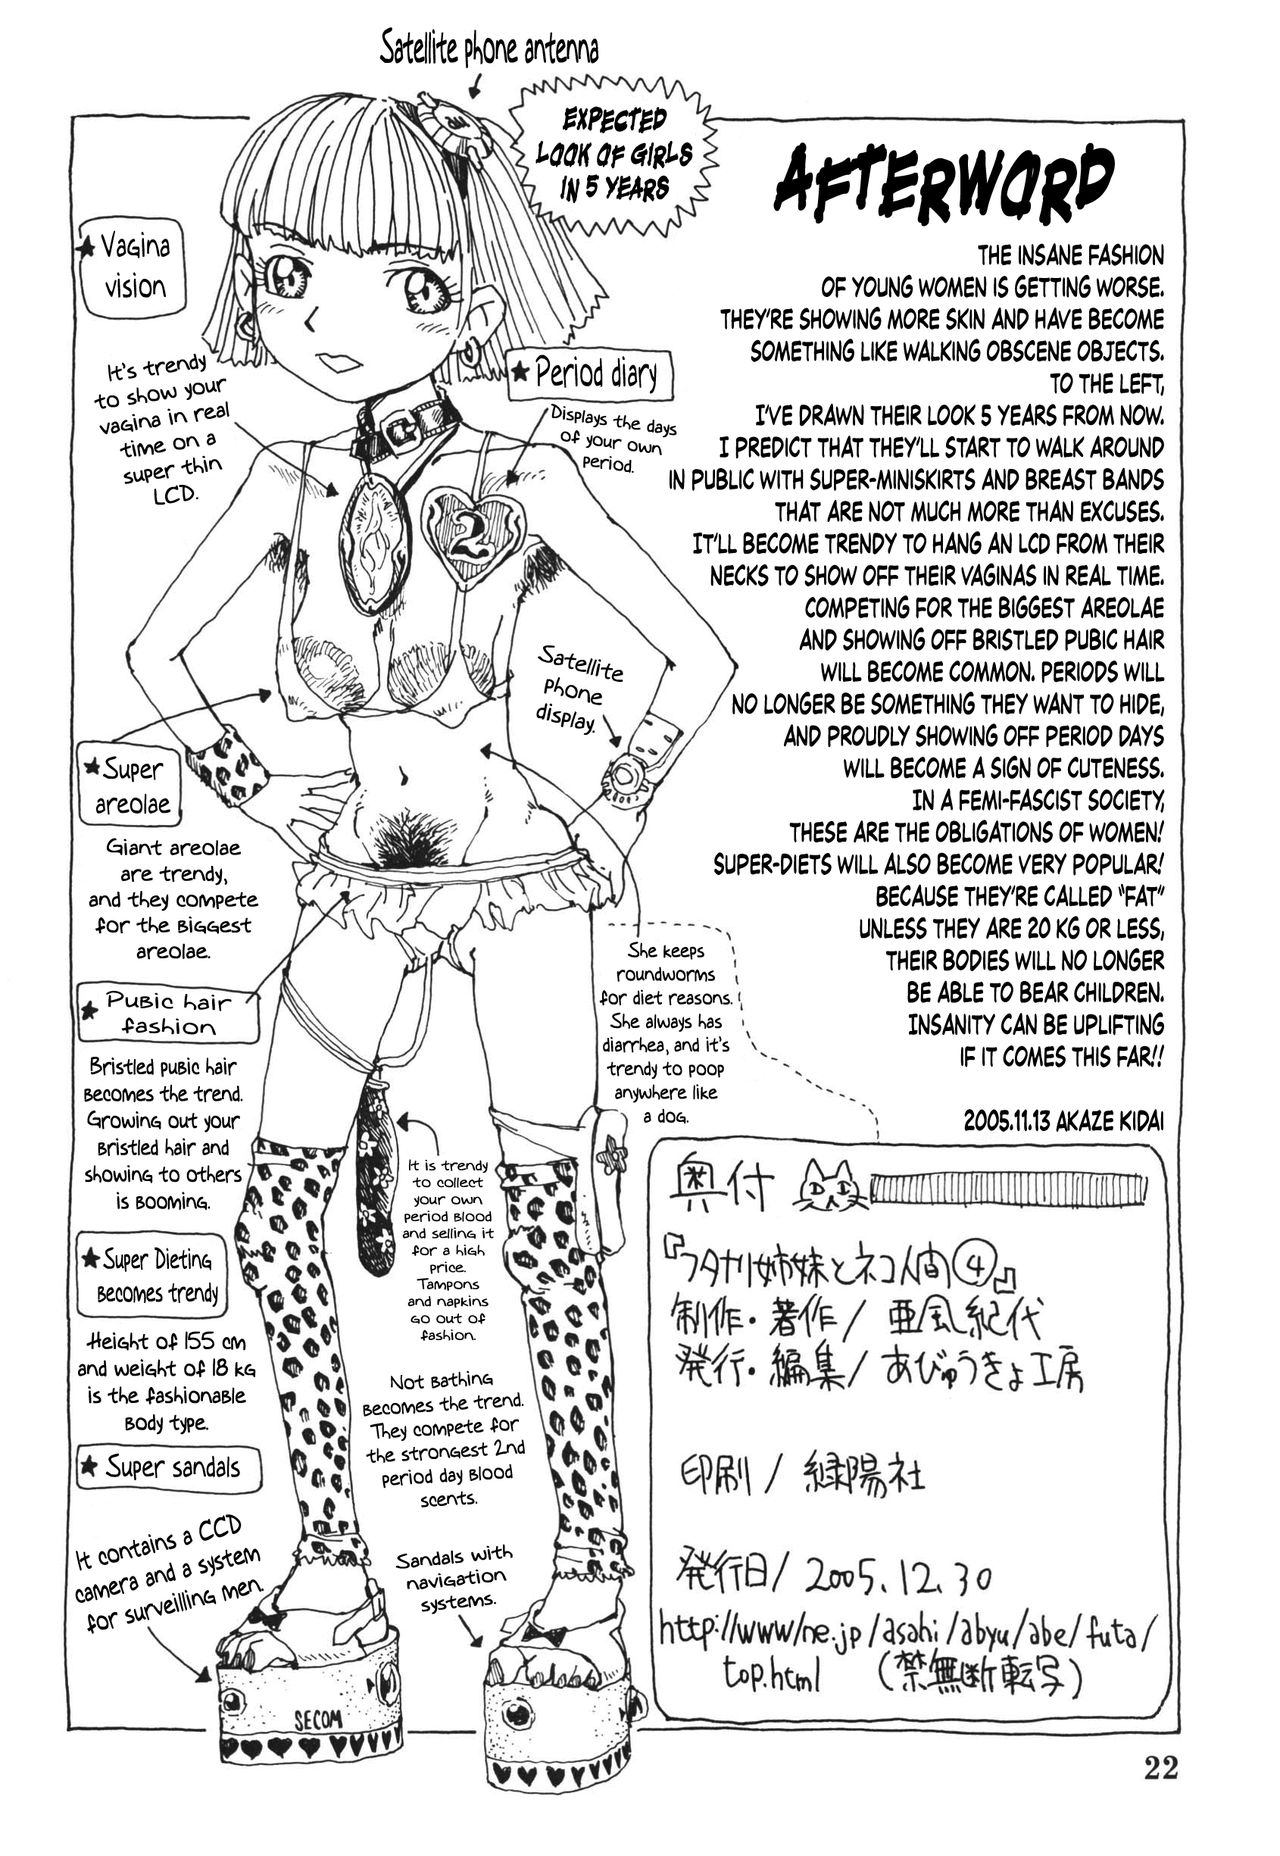 Satellite phone antenna
EXPECTED
LOOK OF GIRLS
IN 5 YEARS
AFTERWORD
THE INSANE FASHION
OF YOUNG WOMEN IS GETTING WORSE.
THEY'RE SHOWING MORE SKIN AND HAVE BECOME
SOMETHING LIKE WALKING OBSCENE OBJECTS.
TO THE LEFT,
I'VE DRAWN THEIR LOOK 5 YEARS FROM NOW.
I PREDICT THAT THEY'LL START TO WALK AROUND
IN PUBLIC WITH SUPER-MINISKIRTS AND BREAST BANDS
THAT ARE NOT MUCH MORE THAN EXCUSES.
IT'LL BECOME TRENDY TO HANG AN LCD FROM THEIR
NECKS TO SHOW OFF THEIR VAGINAS IN REAL TIME.
COMPETING FOR THE BIGGEST AREOLAE
AND SHOWING OFF BRISTLED PUBIC HAIR
WILL BECOME COMMON. PERIODS WILL
NO LONGER BE SOMETHING THEY WANT TO HIDE,
AND PROUDLY SHOWING OFF PERIOD DAYS
WILL BECOME A SIGN OF CUTENESS.
IN A FEMI-FASCIST SOCIETY,
THESE ARE THE OBLIGATIONS OF WOMEN!
SUPER-DIETS WILL ALSO BECOME VERY POPULAR!
BECAUSE THEY'RE CALLED "FAT"
UNLESS THEY ARE 20 KG OR LESS,
THEIR BODIES WILL NO LONGER
BE ABLE TO BEAR CHILDREN.
INSANITY CAN BE UPLIFTING
IF IT COMES THIS FAR!!
2005.11.13 AKAZE KIDAI
★ Vagina
vision
It's trendy
to show your
vagina in real
time on a
super thin
LCD.
★ Period diary
Displays the days
of your own
period.
2
Satellite
phone
display.
★ Super
areolae
Giant areolae
are trendy,
and they compete
for the biggest
areolae.
★ Pubic hair
fashion
Bristled pubic hair
becomes the trend.
Growing out your
bristled hair and
showing to others
is booming.
She keeps
roundworms
for diet reasons.
She always has
diarrhea, and it's
trendy to poop
anywhere like
a dog.
It is trendy
to collect
your own
period blood
and selling it
for a high
price.
Tampons
and napkins
go out of
fashion.
★ Super Dieting
becomes trendy
Height of 155 cm
and weight of 18 kg
is the fashionable
body type.
Not bathing
becomes the trend.
They compete for
the strongest 2nd
period day blood
scents.
★ Super sandals
It contains a CCD
camera and a system
for surveilling men.
Sandals with
navigation
systems.
SECOM
奥付
『フタナリ姉妹とネコ人間④』
制作・著作/ 亜風紀代
発行・編集/ あびゅうきょ工房
印刷/ 緑陽社
発行日/ 2005.12.30
http://www/ne.jp/asahi/abyu/abe/futa/
top.html (禁無断転写)
22